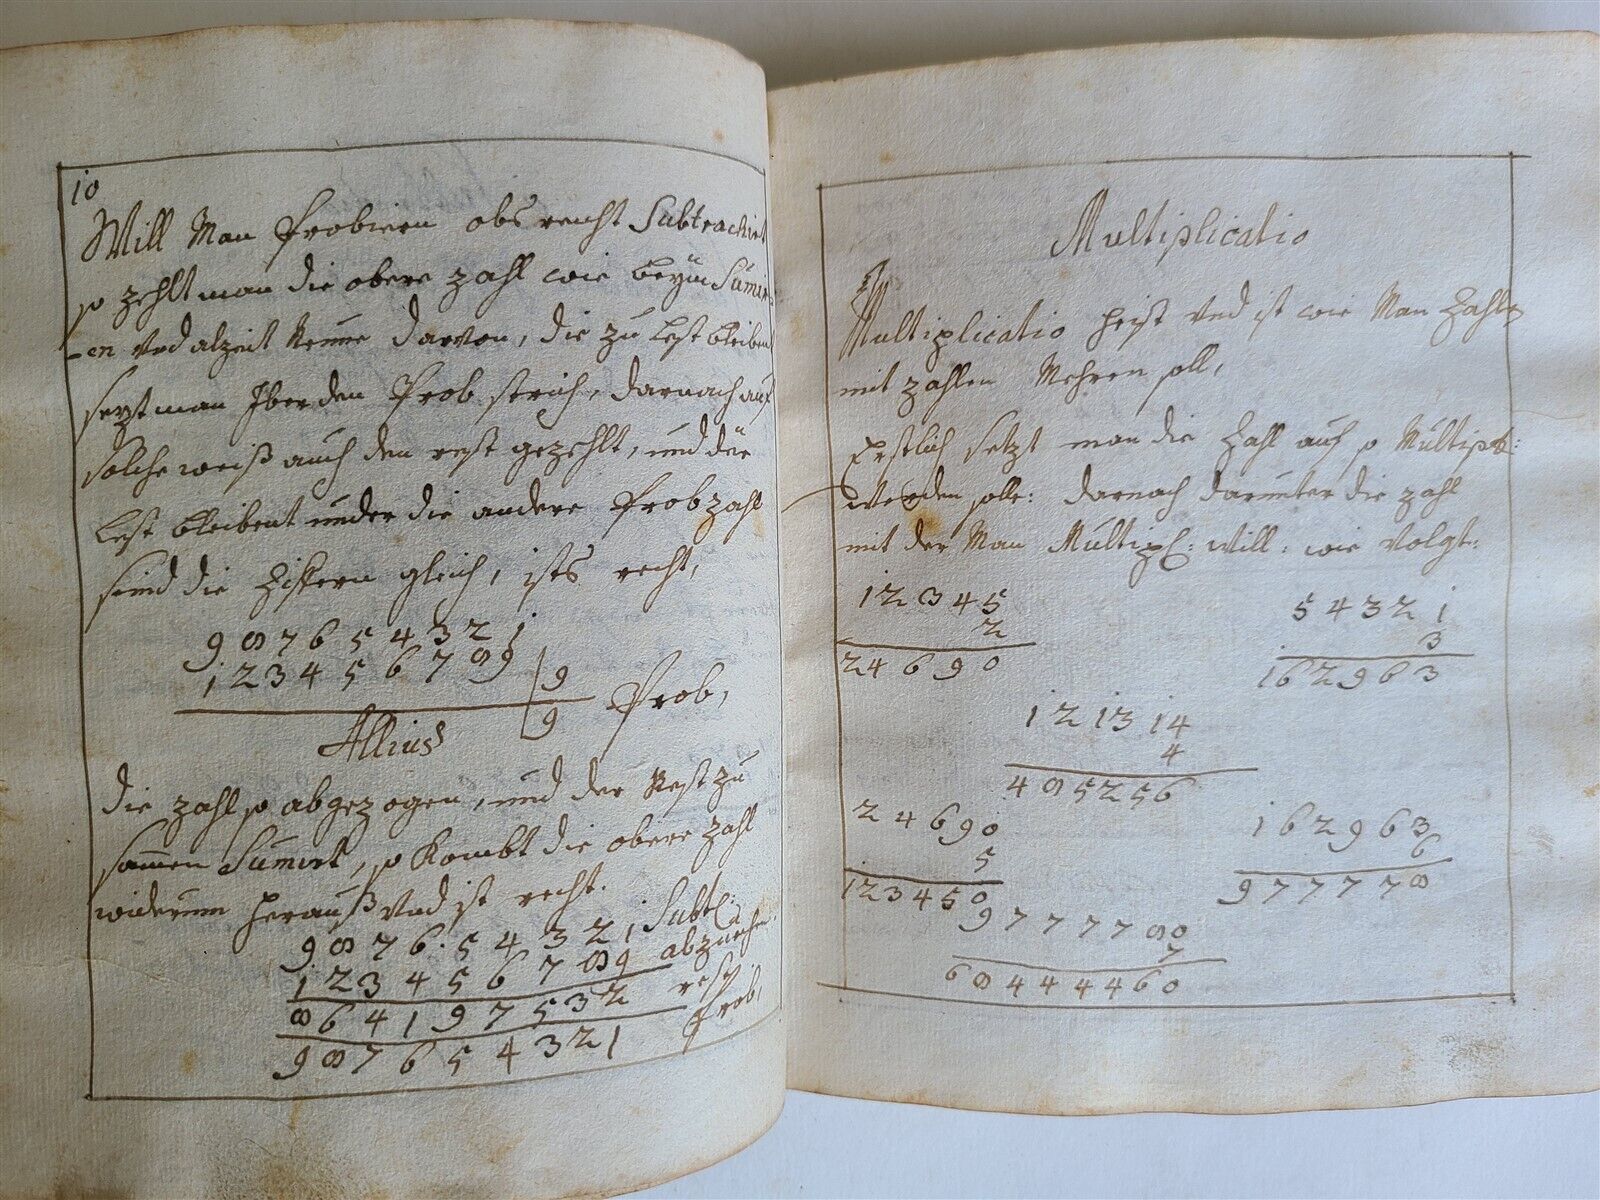 10
Will Man Probiren obs recht Subtrachirt
so zehlt man die obere zahl wie beÿm Sumir
-en vnd alzeit Neune darvon, die zu lest bleiben
sezt man Iber den Prob strich, darnach auf
solche weiß auch den rest gezehlt, und die
lest bleibent under die andere Probzahl
seind die Ziffern gleich, ists recht,
987654321
123456789 9
9 Prob,
Allius
die zahl so abgezogen, und der Rest zu
samen Sumirt, so Kombt die obere zahl
widerum herauß vnd ist recht.
987654321 Subt:
123456789 abzuziehen
864197532 rest
987654321 Prob,
Multiplicatio
Multiplicatio heist vnd ist wie Man Zahlen
mit zahlen Mehren soll,
Erstlich setzt man die Zahl auf so Multipl:
werden solle: darnach darunter die zahl
mit der Man Multipl: will: wie volgt:
12345
2
24690
54321
3
162963
121314
4
485256
24690
5
123450
162963
6
977778
9777780
7
68444460